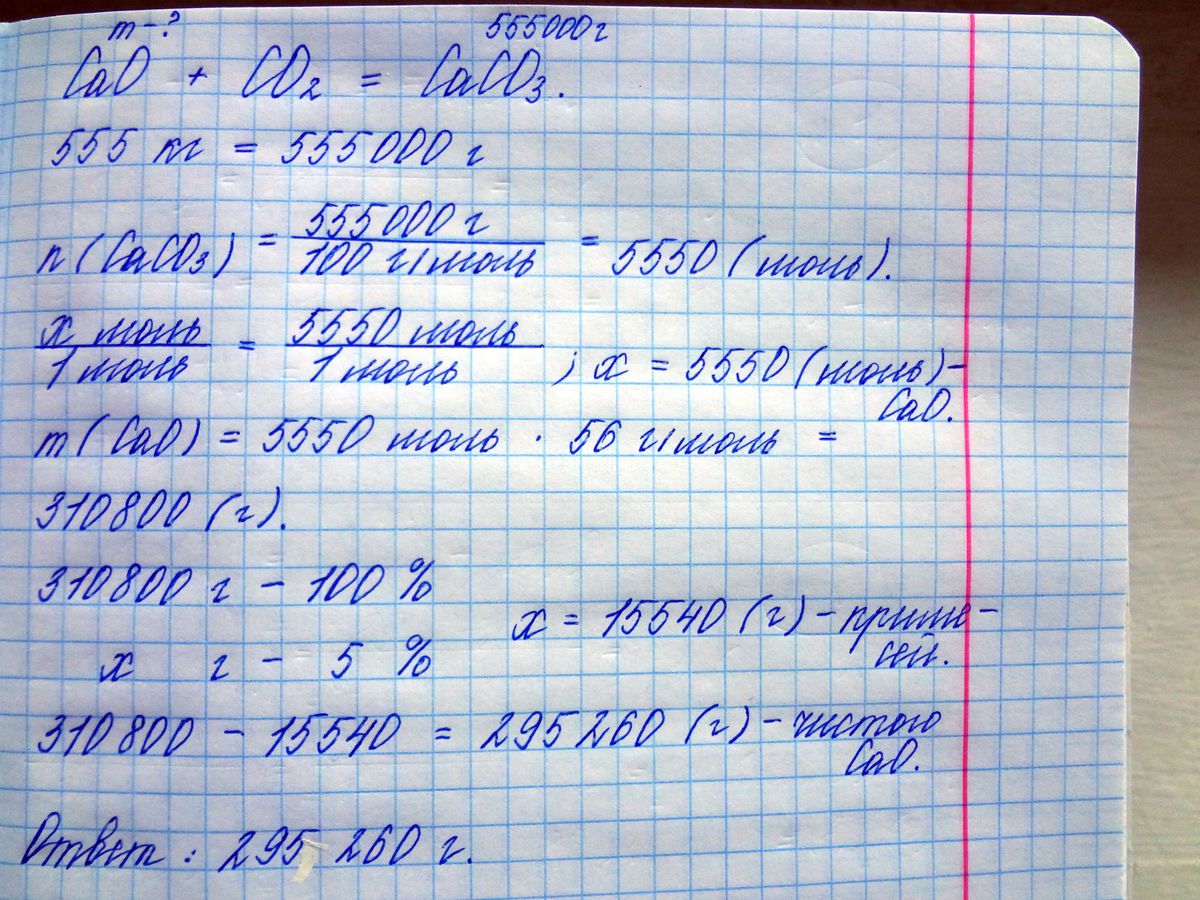 m-? 555000г
CaO + CO₂ = CaCO₃.
555 кг = 555000 г
n(CaCO₃) = 555000 г / 100 г/моль = 5550 (моль).
x моль / 1 моль = 5550 моль / 1 моль ; x = 5550 (моль) -
CaO.
m(CaO) = 5550 моль · 56 г/моль =
310800 (г).
310800 г - 100 %
x = 15540 (г) - приме-
x г - 5 %
сей.
310800 - 15540 = 295260 (г) - чистого
CaO.
Ответ: 295 260 г.